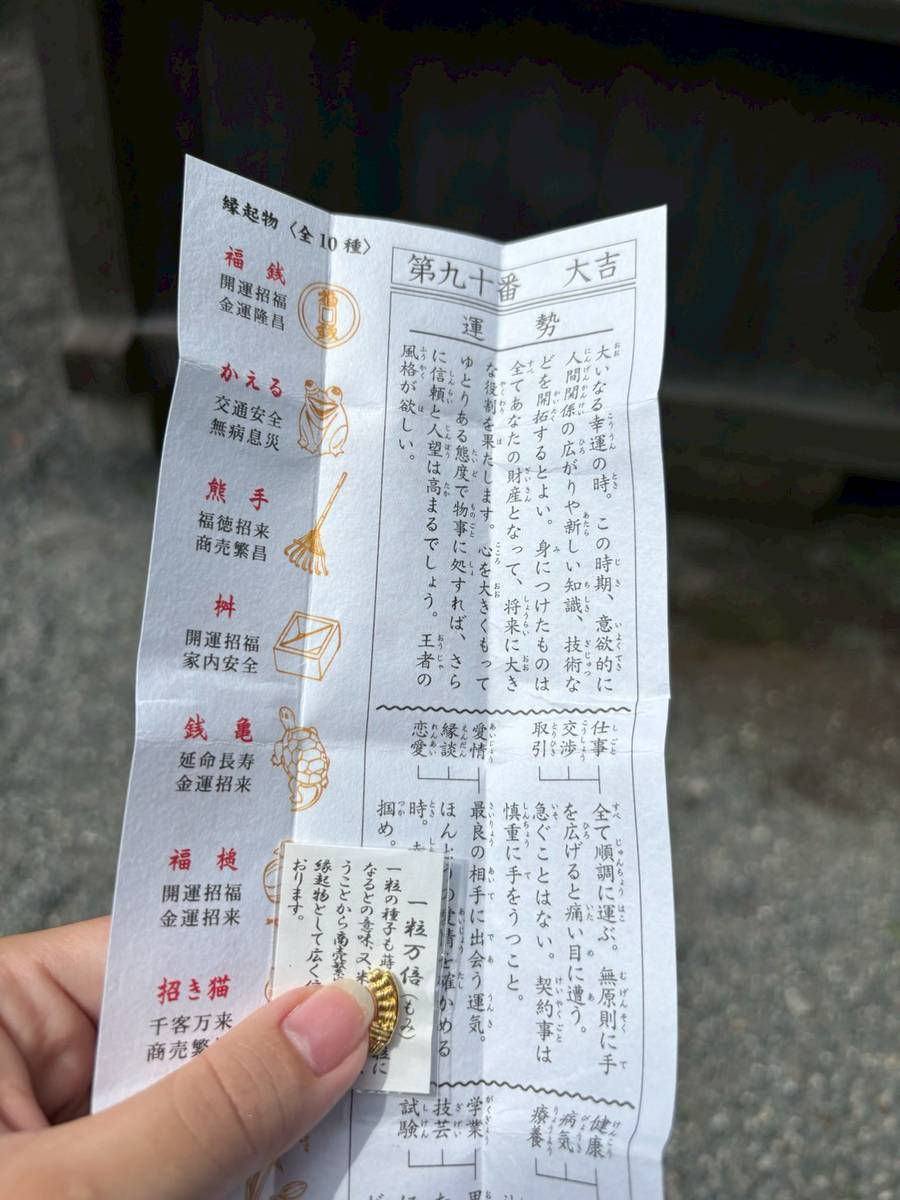 縁起物〈全10種〉
福銭
開運招福
金運隆昌
福
銭
かえる
交通安全
無病息災
熊手
福徳招来
商売繁昌
桝
開運招福
家内安全
銭亀
延命長寿
金運招来
福槌
開運招福
金運招来
招き猫
千客万来
商売繁
第九十番 大吉
運勢
大いなる幸運の時。この時期、意欲的に
人間関係の広がりや新しい知識、技術な
どを開拓するとよい。身につけたものは
全てあなたの財産となって、将来に大き
な役割を果たします。心を大きくもって
ゆとりある態度で物事に処すれば、さら
に信頼と人望は高まるでしょう。王者の
風格が欲しい。
仕事
交渉
取引
全て順調に運ぶ。無原則に手
を広げると痛い目に遭う。
急ぐことはない。契約事は
慎重に手をうつこと。
愛情
縁談
恋愛
最良の相手に出会う運気。
ほん の 情を確かめる
時。
掴め。
健康
病気
療養
学業
技芸
試験
一粒万倍(もみ)
一粒の種子も蒔 粒に
なるとの意味、又、米
うことから商売繁
縁起物として広く
おります。